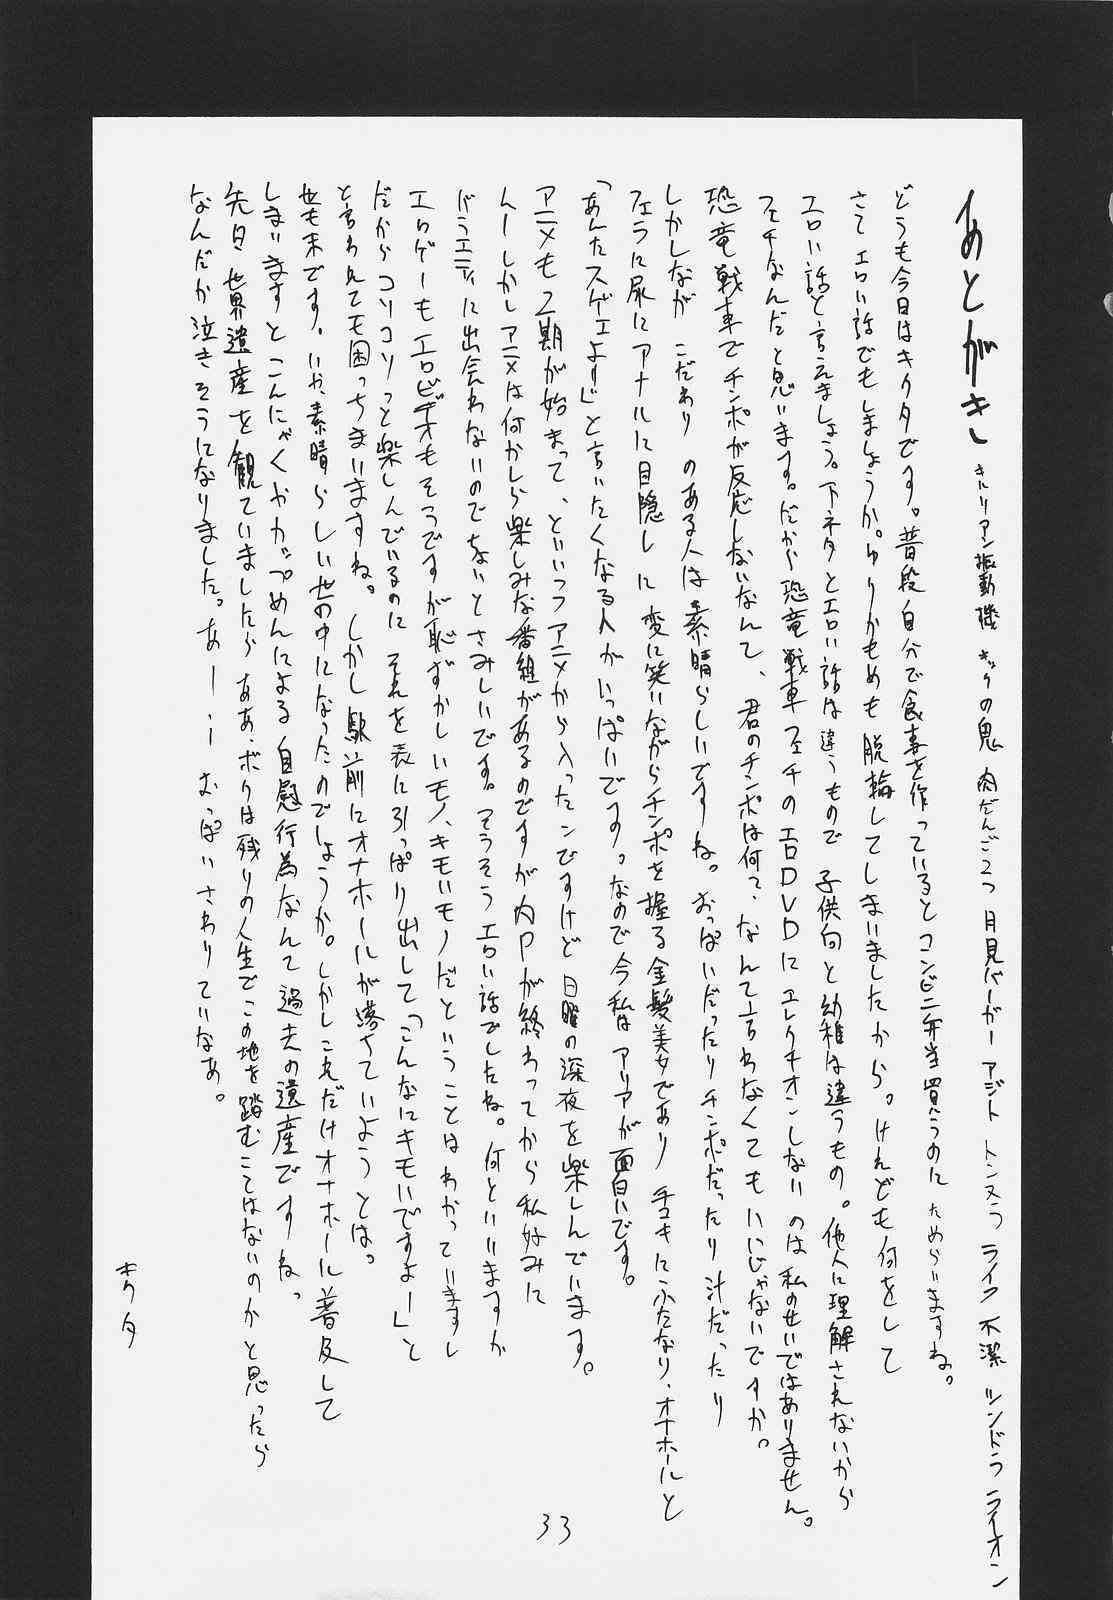 あとがき キルリアン振動機 キックの鬼 肉だんご2つ 月見バーガー アジト トンヌラ ライク 不潔 シンドラ ライオン
どうも今日はキクタです。普段自分で食事を作っているとコンビニ弁当買うのにためらいますね。
さて エロい話でもしましょうか。ゆりかもめも脱輪してしまいましたから。けれども何をして
エロい話と言えましょう。下ネタとエロい話は違うもので 子供向と幼稚は違うもの。他人に理解されないから
フェチなんだと思います。だから恐竜戦車フェチのエロDVDにエレクチオンしないのは私のせいではありません。
恐竜戦車でチンポが反応しないなんて、君のチンポは何て、なんて言わなくてもいいじゃないですか。
しかしながら こだわり のある人は素晴らしいですね。おっぱいだったりチンポだったり汁だったり
フェラに尿にアナルに目隠しに 変に笑いながらチンポを握る金髪美女であり 手コキにふたなり、オナホールと
「あんたスゲェよ!」と言いたくなる人がいっぱいです。なので今私はアリアが面白いです。
アニメも2期が始まって、といっつアニメから入ったンですけど日曜の深夜を楽しんでいます。
んーしかしアニメは何かしら楽しみな番組があるのですが内Pが終わってから私好みに
バラエティに出会わないのでなにとさみしいです。そうそうエロい話でしたね。何といいますか
エロゲーもエロビデオもそうですが恥ずかしいモノ、キモいモノだということはわかっていますし
だからコソコソっと楽しんでいるのに それを表に引っぱり出して「こんなにキモいですよー」と
と言われても困っちまいますね。しかし駅前にオナホールが落ちていようとは。
世も末です。いや、素晴らしい世の中になったのでしょうか。しかしこれだけオナホールに普及して
しまいますとこんにゃくやカップめんによる自慰行為なんて過去の遺産ですねっ
先日世界遺産を観ていましたら ああ、ボクは残りの人生でこの地を踏むことはないのかと思ったら
なんだか泣きそうになりました。あー、ー おっぱいさわりていなあ。
キクタ
33